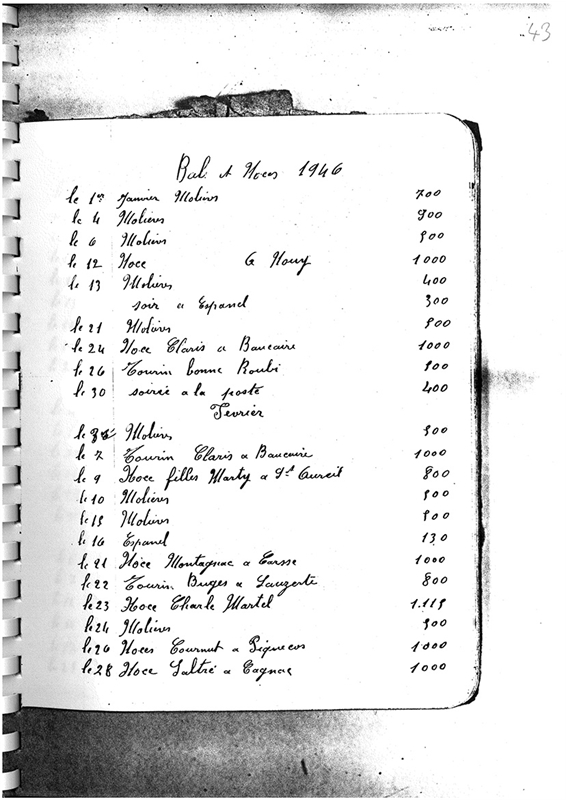 43
Bal et Noces 1946
le 1er Janvier Molières 700
le 4 Molières 900
le 6 Molières 900
le 12 Noce a Nouy 1000
le 13 Molières 400
soir a Espanel 300
le 21 Molières 900
le 24 Noce Claris a Baucaire 1000
le 26 Tourin bonne Roubi 900
le 30 soirée a la poste 400
Fevrier
le Molières 900
le 7 Tourin Claris a Baucaire 1000
le 9 Noce filles Marty a St Aureil 800
le 10 Molières 900
le 15 Molières 900
le 16 Espanel 130
le 21 Noce Montagnac a 1000
le 22 Tourin Buges a Lauzerte 800
le 23 Noce Charle Martel 1.115
le 24 Molières 900
le 26 Noces Cournut a Piquecos 1000
le 28 Noce Saltré a Cagnac 1000